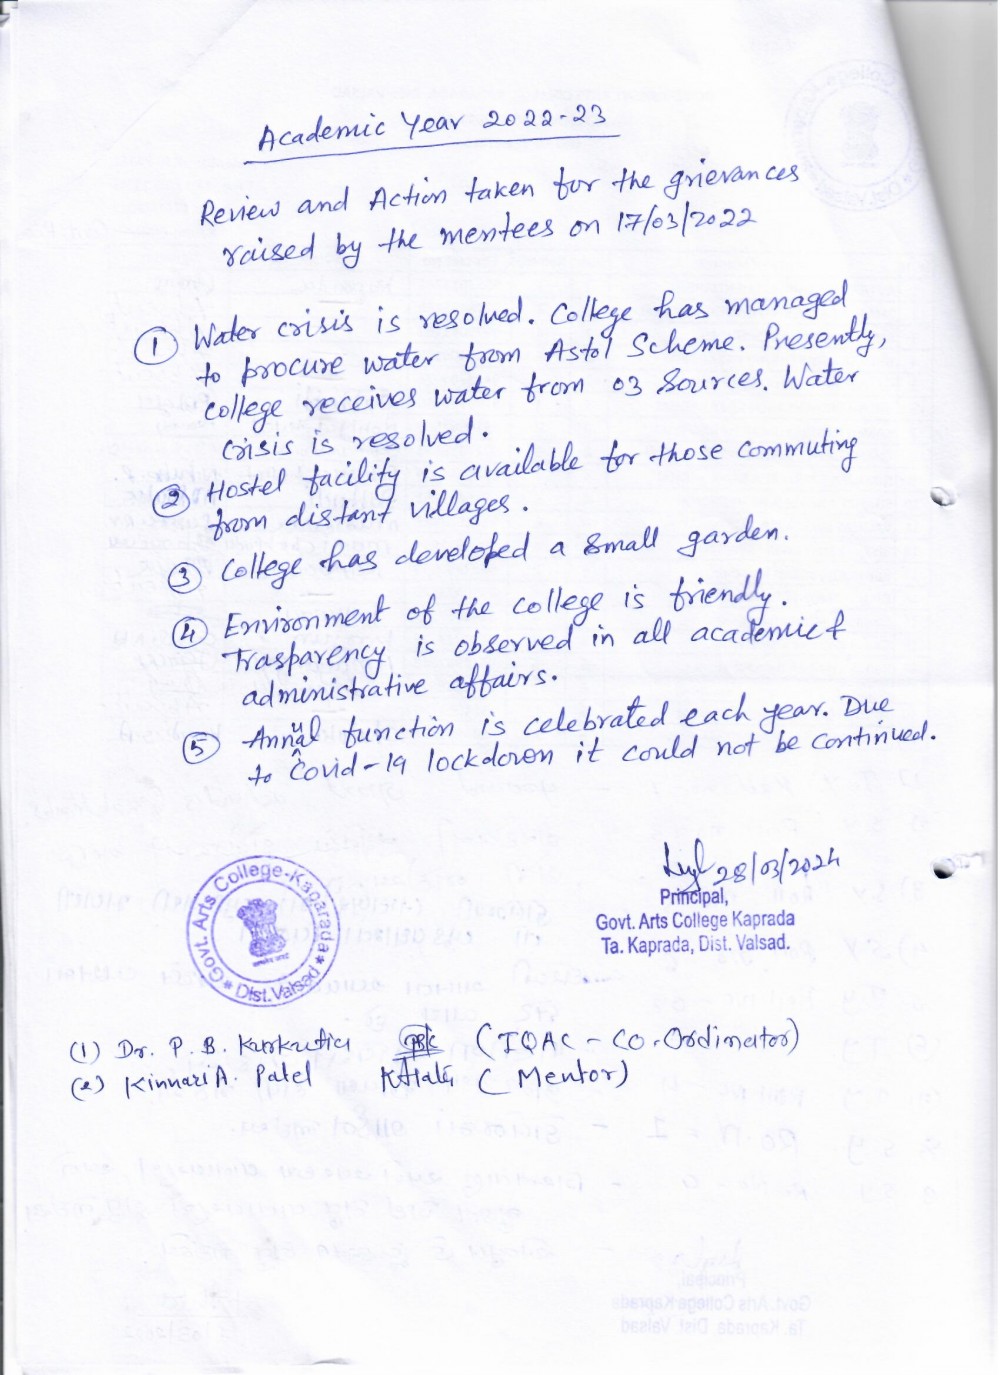 Academic Year 2022-23
Review and Action taken for the grievances
raised by the mentees on 17/03/2022
① Water crisis is resolved. College has managed
to procure water from Astol Scheme. Presently,
college receives water from 03 Sources. Water
crisis is resolved.
② Hostel facility is available for those commuting
from distant villages.
③ College has developed a small garden.
④ Environment of the college is friendly.
Trasparency is observed in all academic &
administrative affairs.
⑤ Annual function is celebrated each year. Due
to Covid-19 lockdown it could not be continued.
28/03/2024
Principal,
Govt. Arts College Kaprada
Ta. Kaprada, Dist. Valsad.
Govt. Arts College-Kaparada
Dist. Valsad
(1) Dr. P. B. (IQAC - Co-Ordinator)
(2) Kinnari A. Patel (Mentor)